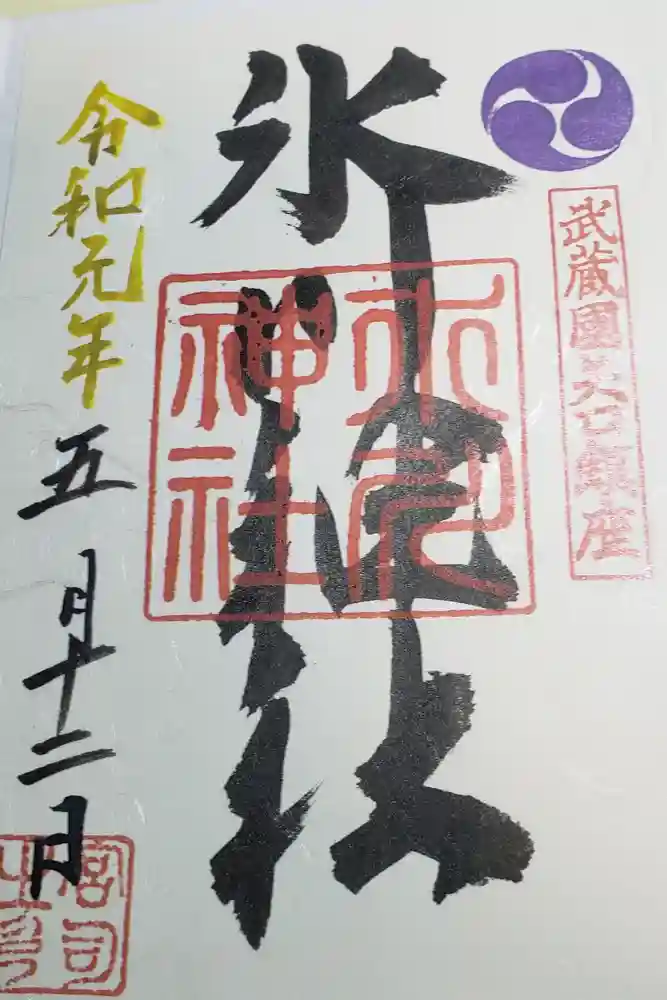 武蔵國
鎮座
氷川神社
氷川神社
令和元年
五月十二日
宮司之印